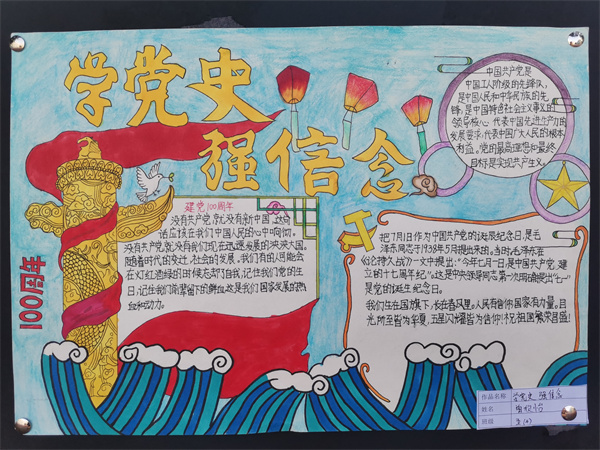 学党史
强信念
中国共产党是
中国工人阶级的先锋队，
是中国人民和中华民族的先
锋，是中国特色社会主义事业的
领导核心，代表中国先进生产力的
发展要求，代表中国广大人民的根本
利益。党的最高理想和最终
目标是实现共产主义。
建党100周年
没有共产党，就没有新中国，这句
话应该在我们中国人民的心中响彻，
没有共产党，就没有我们现在迅速发展的泱泱大国。
随着时代的变迁，社会的发展，我们有的人可能会
在灯红酒绿的时候忘却了自我，记住我们党的生
日，记住我们背后留下的鲜血，这是我们国家发展的热
血和动力。
100周年
把7月1日作为中国共产党的诞辰纪念日，是毛
泽东同志于1938年5月提出来的。当时，毛泽东在
《论持久战》一文中提出："今年七月一日，是中国共产党建
立的十七周年纪"。这是中央领导同志第一次明确提出"七一"
是党的诞生纪念日。
我们生在国旗下，长在春风里。人民有信仰，国家有力量。目
光所至皆为华夏，五星闪耀皆为信仰！祝祖国繁荣昌盛！
作品名称 学党史 强信念
姓名
班级